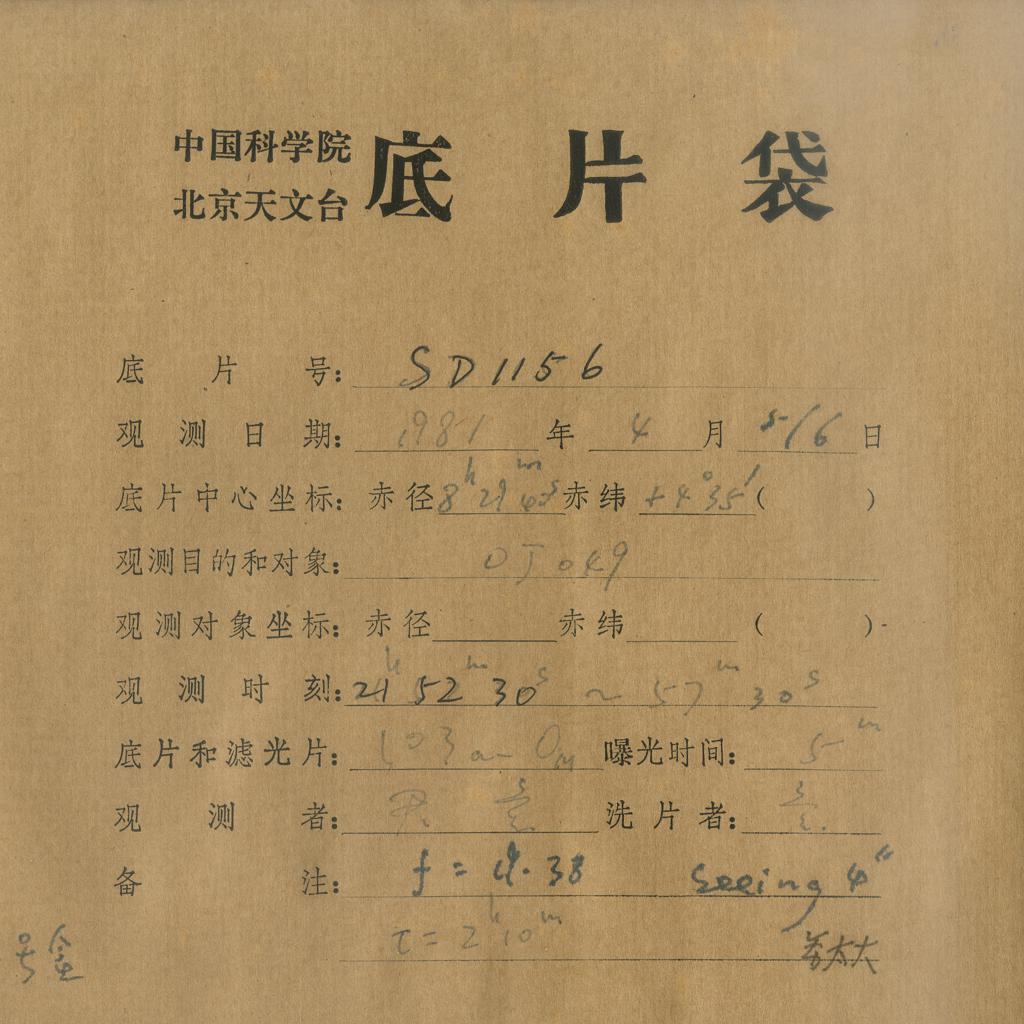 中国科学院
北京天文台
底片袋
底片号: SD1156
观测日期: 1981年 4月 5/6日
底片中心坐标: 赤径 8h 29m 42s 赤纬 +4°35′ ( )
观测目的和对象: OJ049
观测对象坐标: 赤径 赤纬 ( )
观测时刻: 21h 52m 30s ~ 57m 30s
底片和滤光片: 103a-O 曝光时间: 5m
观测者: 洗片者:
备注: f = 4.38 seeing 4″
τ = 2h10m